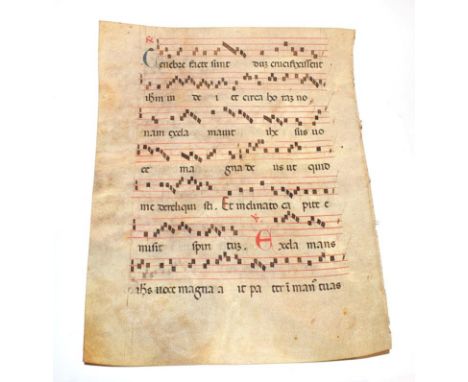 ℟
Cenebre facte sunt duz crucifixissent
ihm iu de i et circa ho raz no
nam excla mauit ihe sus uo
ce ma gna de us ut quid
me dereliqui sti. Et inclinato ca pite e
misit spin tuz. ℣ Excla mans
ihs uoce magna a it pa ter i man tuas